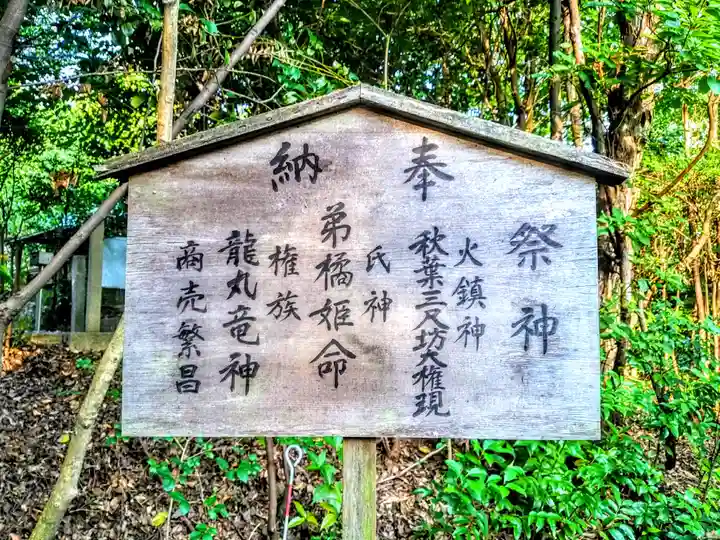 奉納
祭神
火鎮神
秋葉三尺坊大権現
氏神
弟橘姫命
権族
龍丸竜神
商売繁昌